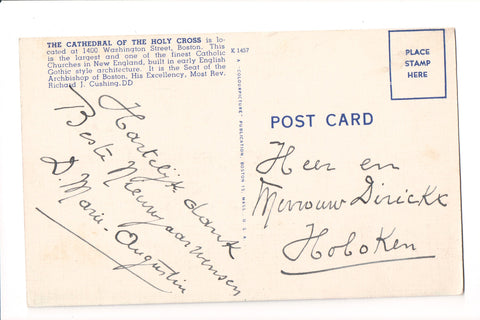 THE CATHEDRAL OF THE HOLY CROSS is lo-
cated at 1400 Washington Street, Boston. This
is the largest and one of the finest Catholic
Churches in New England, built in early English
Gothic style architecture. It is the Seat of the
Archbishop of Boston, His Excellency, Most Rev.
Richard J. Cushing.DD
K 1457
A "COLOURPICTURE" PUBLICATION, BOSTON 15, MASS., U.S.A.
PLACE
STAMP
HERE
POST CARD
Hartelijk dank
Beste Nieuwjaarwensen
D. Marie-Augustin
Heer en
Mevrouw Dirickx
Hoboken